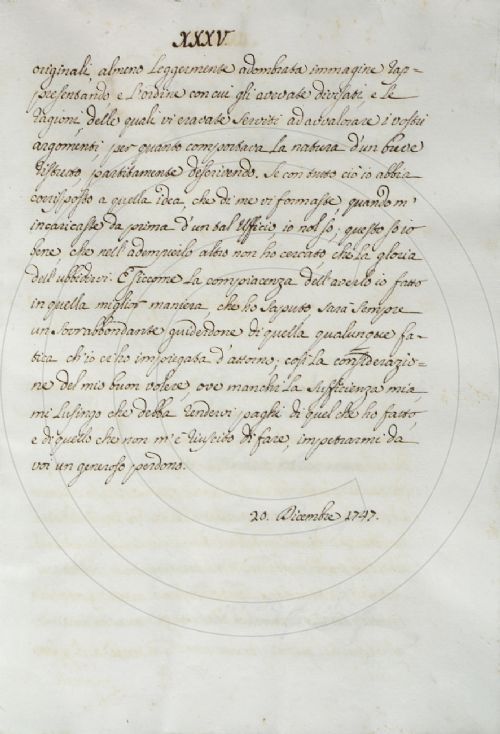 XXXV
originali, almeno leggermente adombrata immagine rap=
presentando, e l'ordine con cui gli avevate divisati, e le
ragioni, delle quali vi eravate serviti ad avvalorare i vostri
argomenti, per quanto comportava la natura d'un breve
ristreto partitamente descrivendo. Se con tutto ciò io abbia
corrisposto a quella idea, che di me vi formaste, quando m'
incaricaste da prima d'un tal Uffizio io nol so; questo so io
bene, che nell'adempierlo altro non ho cercato che la gloria
dell'ubbidirvi. E siccome la compiacenza dell'averlo io fatto
in quella miglior maniera, che ho saputo sarà sempre
un sovrabbondante guiderdone di quella qualunque fa=
tica ch'io ce ho impiegata d'attorno, così la considerazio=
ne del mio buon volere, ove manchi la sufficienza mia,
mi lusingo che debba rendervi paghi di quel che ho fatto,
e di quello che non m'è riuscito di fare, impetrarmi da
voi un generoso perdono.
20. Dicembre 1747.